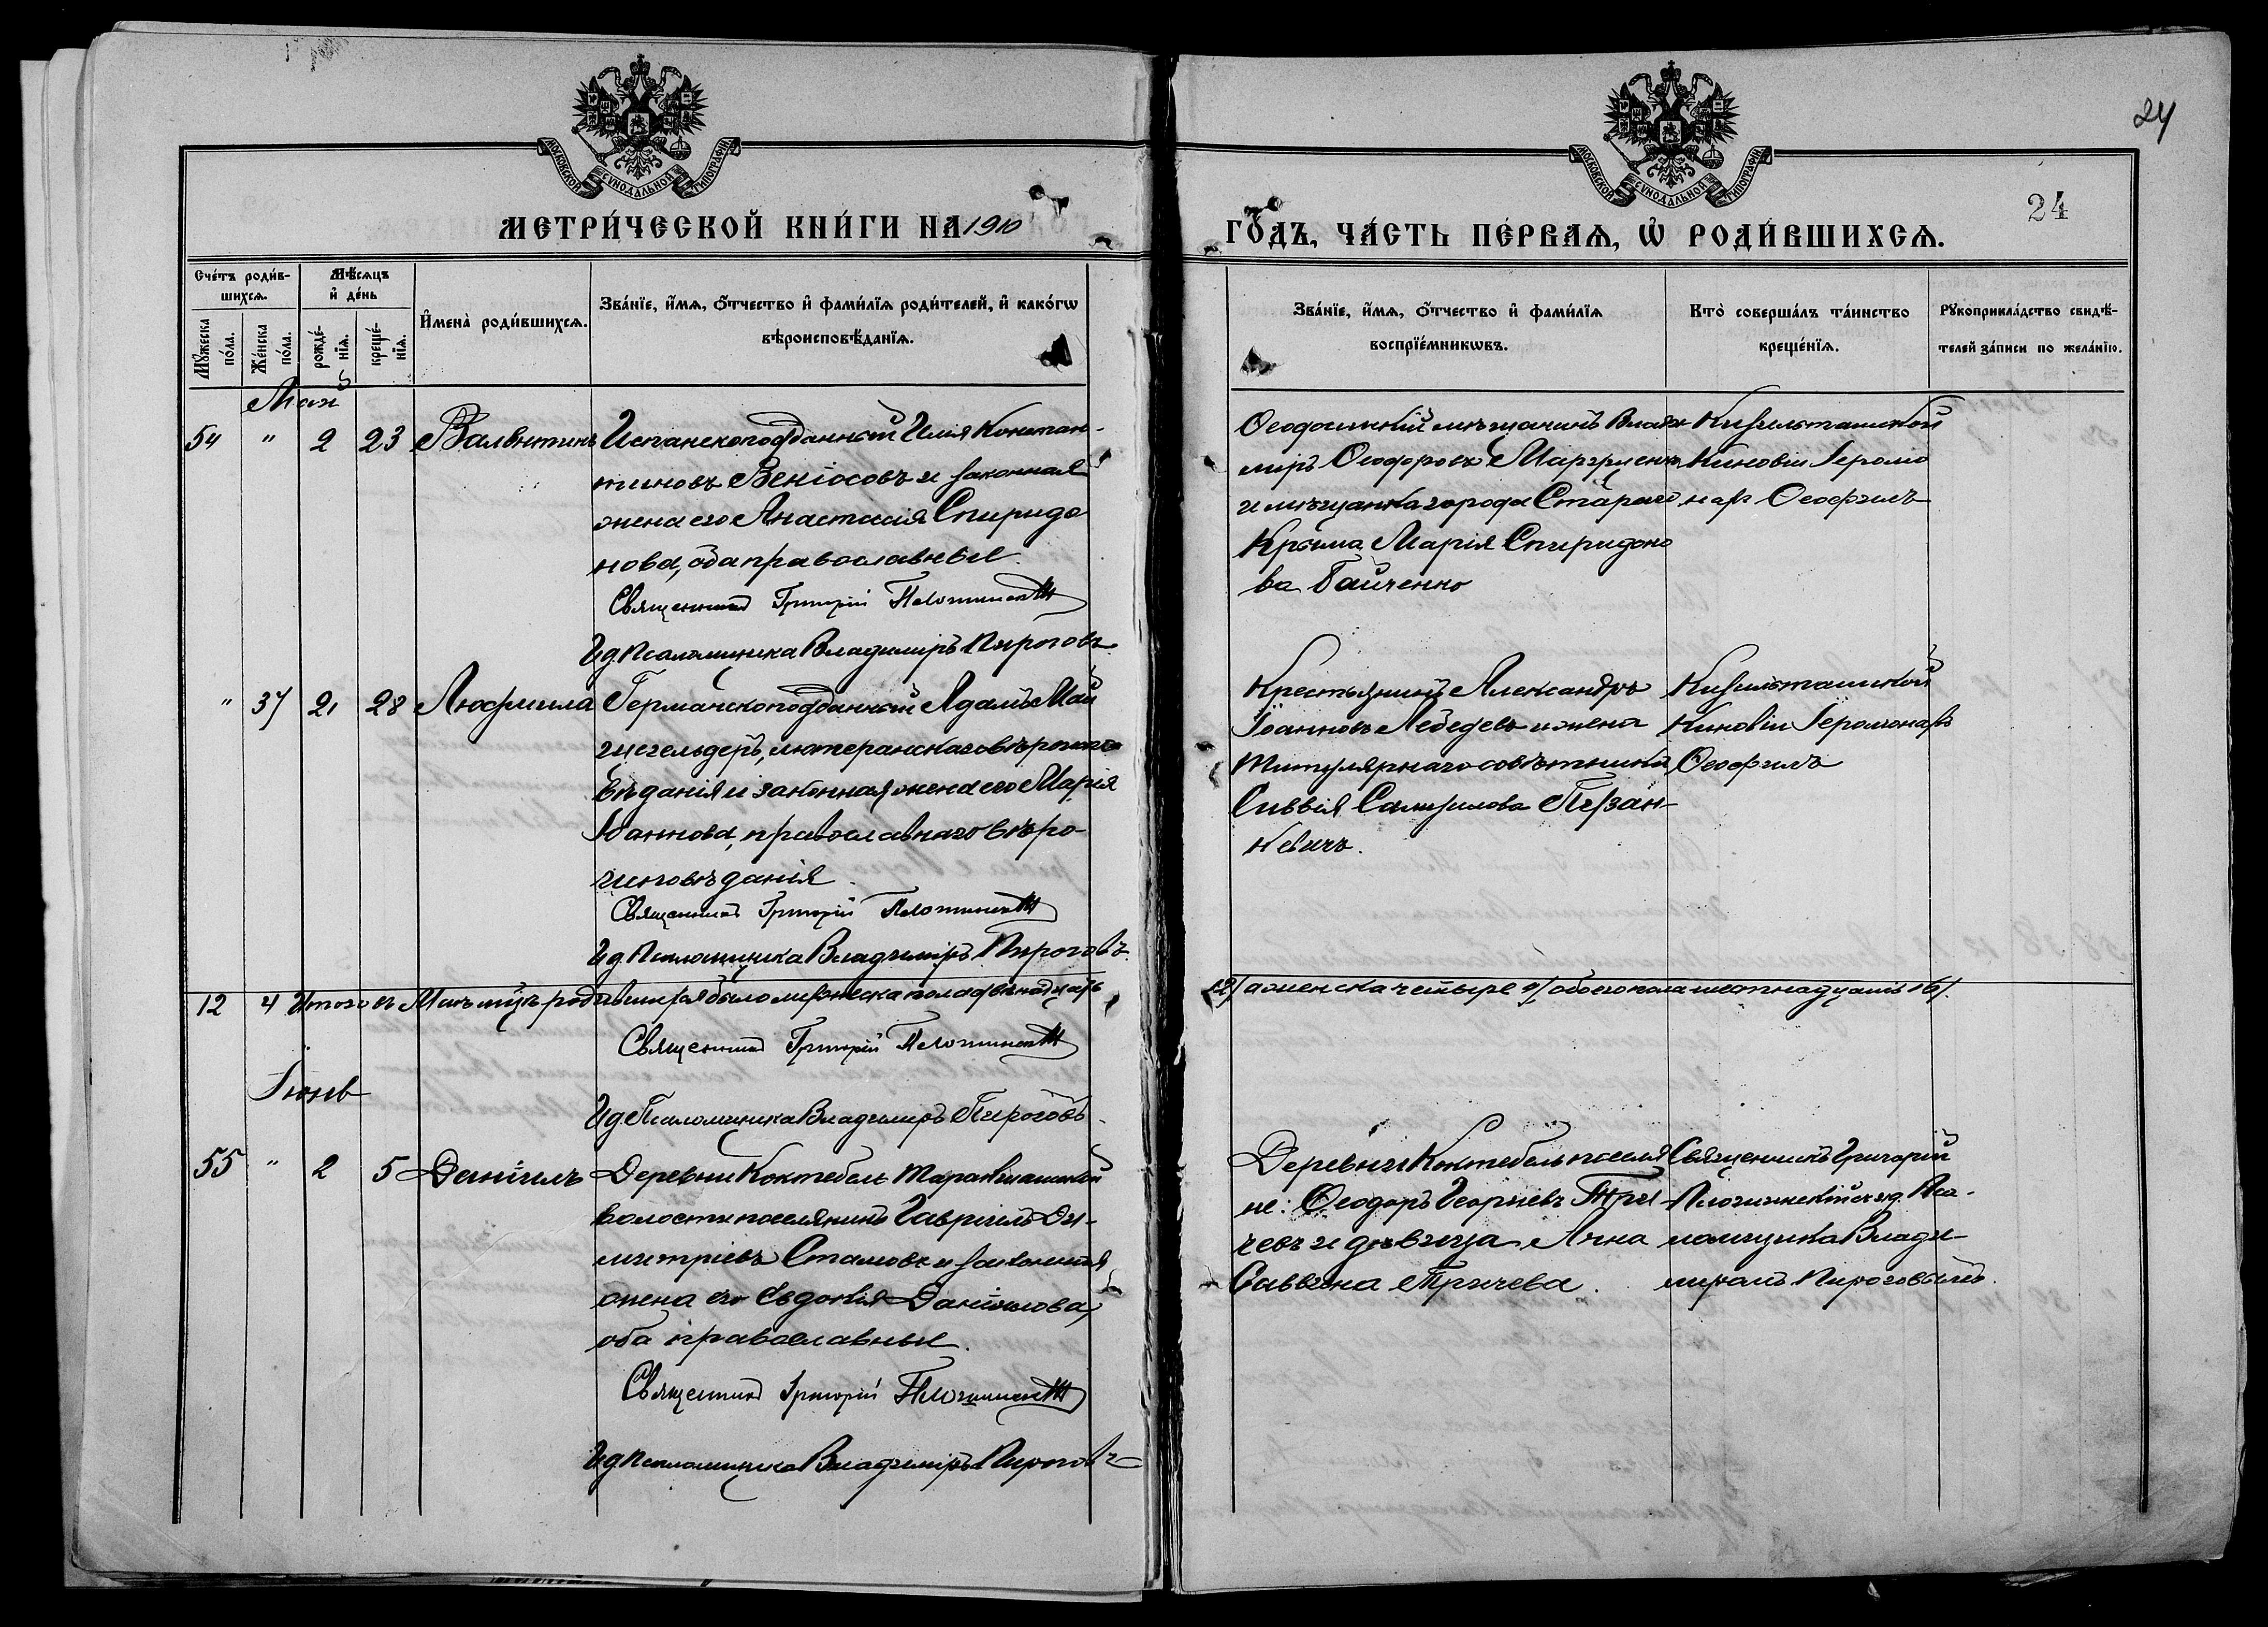 24
МОСКОВСКОЙ СУНОДАЛЬНОЙ ТИПОГРАФІИ
МОСКОВСКОЙ СУНОДАЛЬНОЙ ТИПОГРАФІИ
24
МЕТРИ́ЧЕСКОЙ КНИ́ГИ НА 1910
ГО́ДЪ, ЧА́СТЬ ПЕ́РВАѦ, Ѡ РОДИ́ВШИХСѦ.
Сче́тъ роди́в-
шихсѧ.
Мꙋ́жеска по́ла.
Же́нска по́ла.
Мѣ́сѧцъ
и҆ де́нь
рожде́-
нїѧ.
креще́-
нїѧ.
И҆мена̀ роди́вшихсѧ.
Зва́нїе, и҆́мѧ, ѻ҆́тчество и҆ фами́лїѧ роди́телей, и҆ како́гѡ
вѣроисповѣ́данїѧ.
Зва́нїе, и҆́мѧ, ѻ҆́тчество и҆ фами́лїѧ
воспрїе́мникѡвъ.
Кто̀ соверша́лъ та́инство
креще́нїѧ.
Рꙋкоприкла́дство свидѣ́-
телей за́писи по жела́нїю.
Май
54 " 2 23 Валентинъ
Испанскоподданный Илія Констан-
тиновъ Веніосовъ и законная
жена его Анастасія Спиридо
нова, оба православные.
Священникъ Григорій
Ид. Псаломщика Владиміръ Пироговъ
Ѳеодосійскій мѣщанинъ Влади
міръ Ѳеодоровъ
и мѣщанка города Стараго
Крыма Марія Спиридоно
ва Гайченко
Кизильташской
Киновіи Іеромо
нах Ѳеофилъ
" 37 21 28 Людмила
Германскоподданный Адамъ Май
лютеранскаго вѣроиспо
вѣданія и законная жена его Марія
Іоаннова, православнаго вѣро
исповѣданія.
Священникъ Григорій
Ид. Псаломщика Владиміръ Пироговъ.
Крестьянинъ Александръ
Іоанновъ Лебедевъ и жена
Титулярнаго совѣтника
Самуилова
кевичъ.
Кизильташской
Киновіи Іеромонахъ
Ѳеофилъ
12 4 Итого въ Маѣ мѣсяцѣ родившихся было мужеска пола двѣнадцать
12/ а женска четыре 4/ обоего пола шестнадцать 16/.
Священникъ Григорій
Ид. Псаломщика Владиміръ Пироговъ.
Іюнь
55 " 2 5 Даніилъ
Деревни Коктебель Таракташской
волости поселянинъ Гавріилъ Ди-
митріевъ Стамовъ и законная
жена его Евдокія Даніилова,
оба православные.
Священникъ Григорій
Ид. Псаломщика Владиміръ Пироговъ
Деревни Коктебель поселя
не: Ѳеодоръ Георгіевъ Три
чевъ и дѣвица Анна
Саввина Тричева.
Священникъ Григорій
с и.д. Пса-
ломщика Влади-
міромъ Пироговымъ.